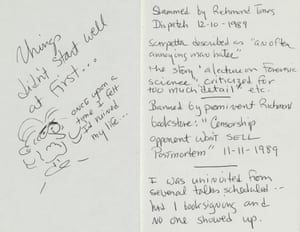 Things
didn't start well
at first...
once upon a
time I felt
I'd ruined
my life...
Slammed by Richmond Times
Dispatch 12-10-1989
Scarpetta described as "an often
annoying man hater"
the story "a lecture on Forensic
science" criticized for
too much detail" etc.
Banned by prominent Richmond
bookstore: "Censorship
opponent won't SELL
Postmortem" 11-11-1989
I was uninvited from
several talks scheduled --
had 1 booksigning and
no one showed up.